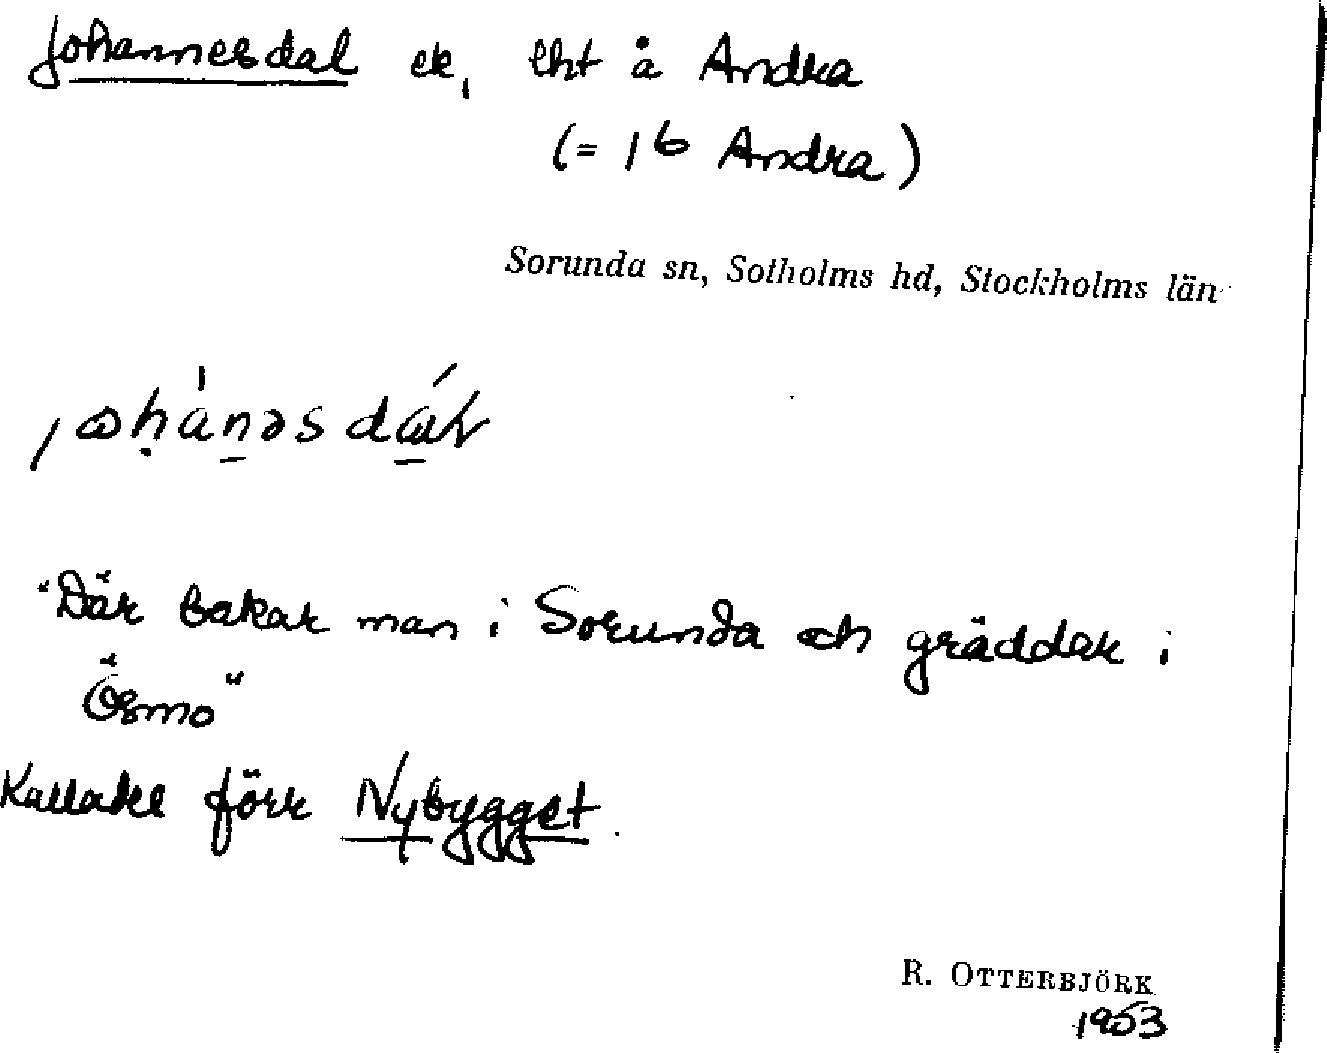 Johannesdal ek, lht å Andra
(= 1⁶ Andra)
Sorunda sn, Sotholms hd, Stockholms län
"Där bakar man i Sorunda och gräddar i
Ösmo"
Kallades förr Nybygget.
R. OTTERBJÖRK
1953